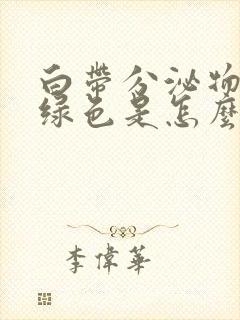 白帶分泌物
綠色是怎麼
李偉華